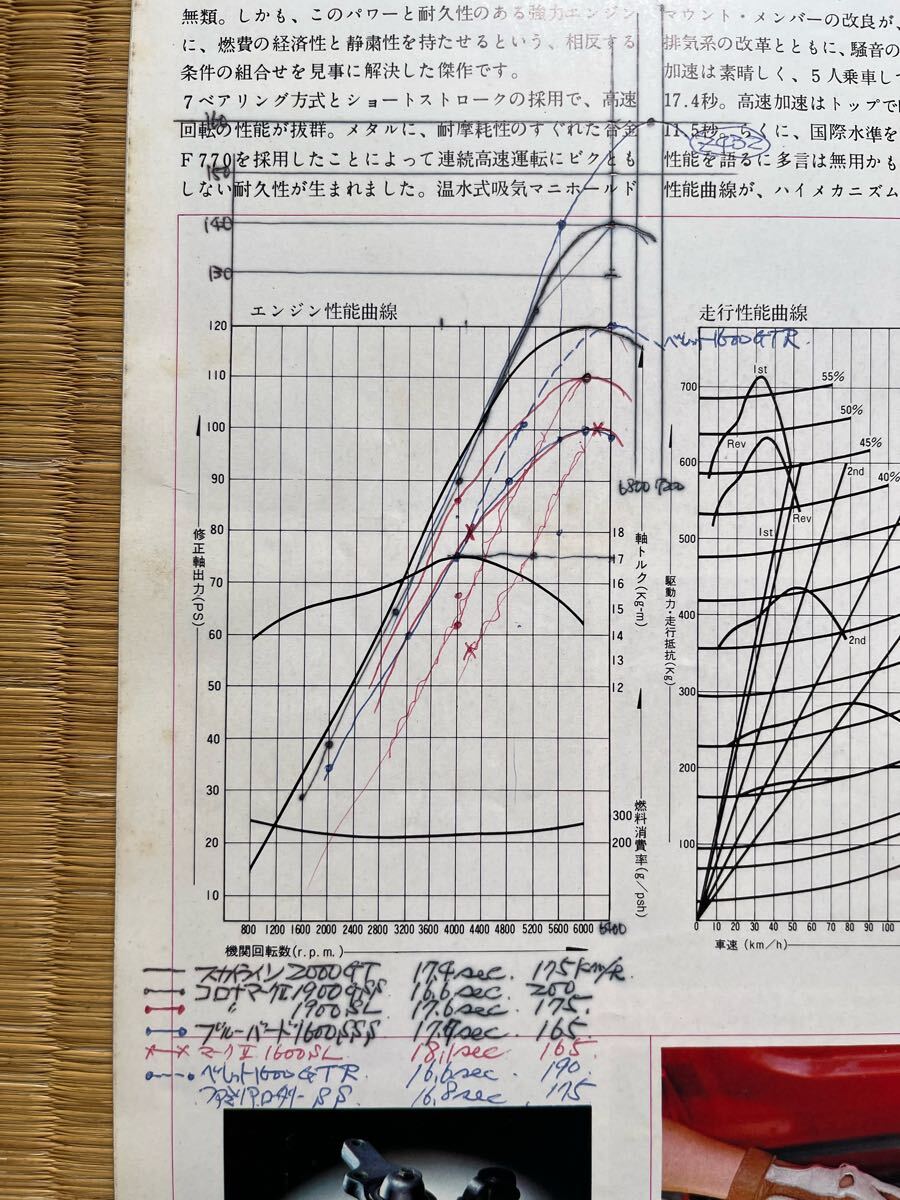 無類。しかも、このパワーと耐久性のある強力エンジン
に、燃費の経済性と静粛性を持たせるという、相反する
条件の組合せを見事に解決した傑作です。
7ベアリング方式とショートストロークの採用で、高速
回転の性能が抜群。メタルに、耐摩耗性のすぐれた合金
F770を採用したことによって連続高速運転にビクとも
しない耐久性が生まれました。温水式吸気マニホールド
マウント・メンバーの改良が、
排気系の改革とともに、騒音の
加速は素晴しく、5人乗車して
17.4秒。高速加速はトップで
11.5秒。らくに、国際水準を
性能を語るに多言は無用かも
性能曲線が、ハイメカニズム
Z432
160
150
140
130
エンジン性能曲線
120
110
100
90
80
70
60
50
40
30
20
10
修正軸出力(PS)
ベレット1600GTR
6800 7200
18
17
16
15
14
13
12
軸トルク(Kg-m)
300
200
燃料消費率(g/psh)
800 1200 1600 2000 2400 2800 3200 3600 4000 4400 4800 5200 5600 6000 6400
機関回転数(r.p.m.)
走行性能曲線
700
600
500
400
300
200
100
駆動力・走行抵抗(Kg)
1st
55%
50%
Rev
45%
2nd
40%
Rev
1st
2nd
0 10 20 30 40 50 60 70 80 90 100
車速(km/h)
スカイライン2000GT 17.4sec. 175km/h.
コロナマークII1900GSS 16.6sec. 200
〃 1900SL 17.6sec. 175.
ブルーバード1600SSS 165
マークII 1600SL 18.1sec 165.
ベレット1600GTR. 16.6sec. 190.
ファミリアロータリーSS. 16.8sec. 175